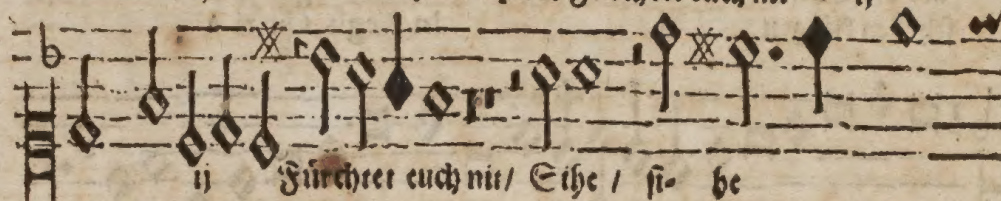 ij Fürchtet euch nit/ Sihe / si- he